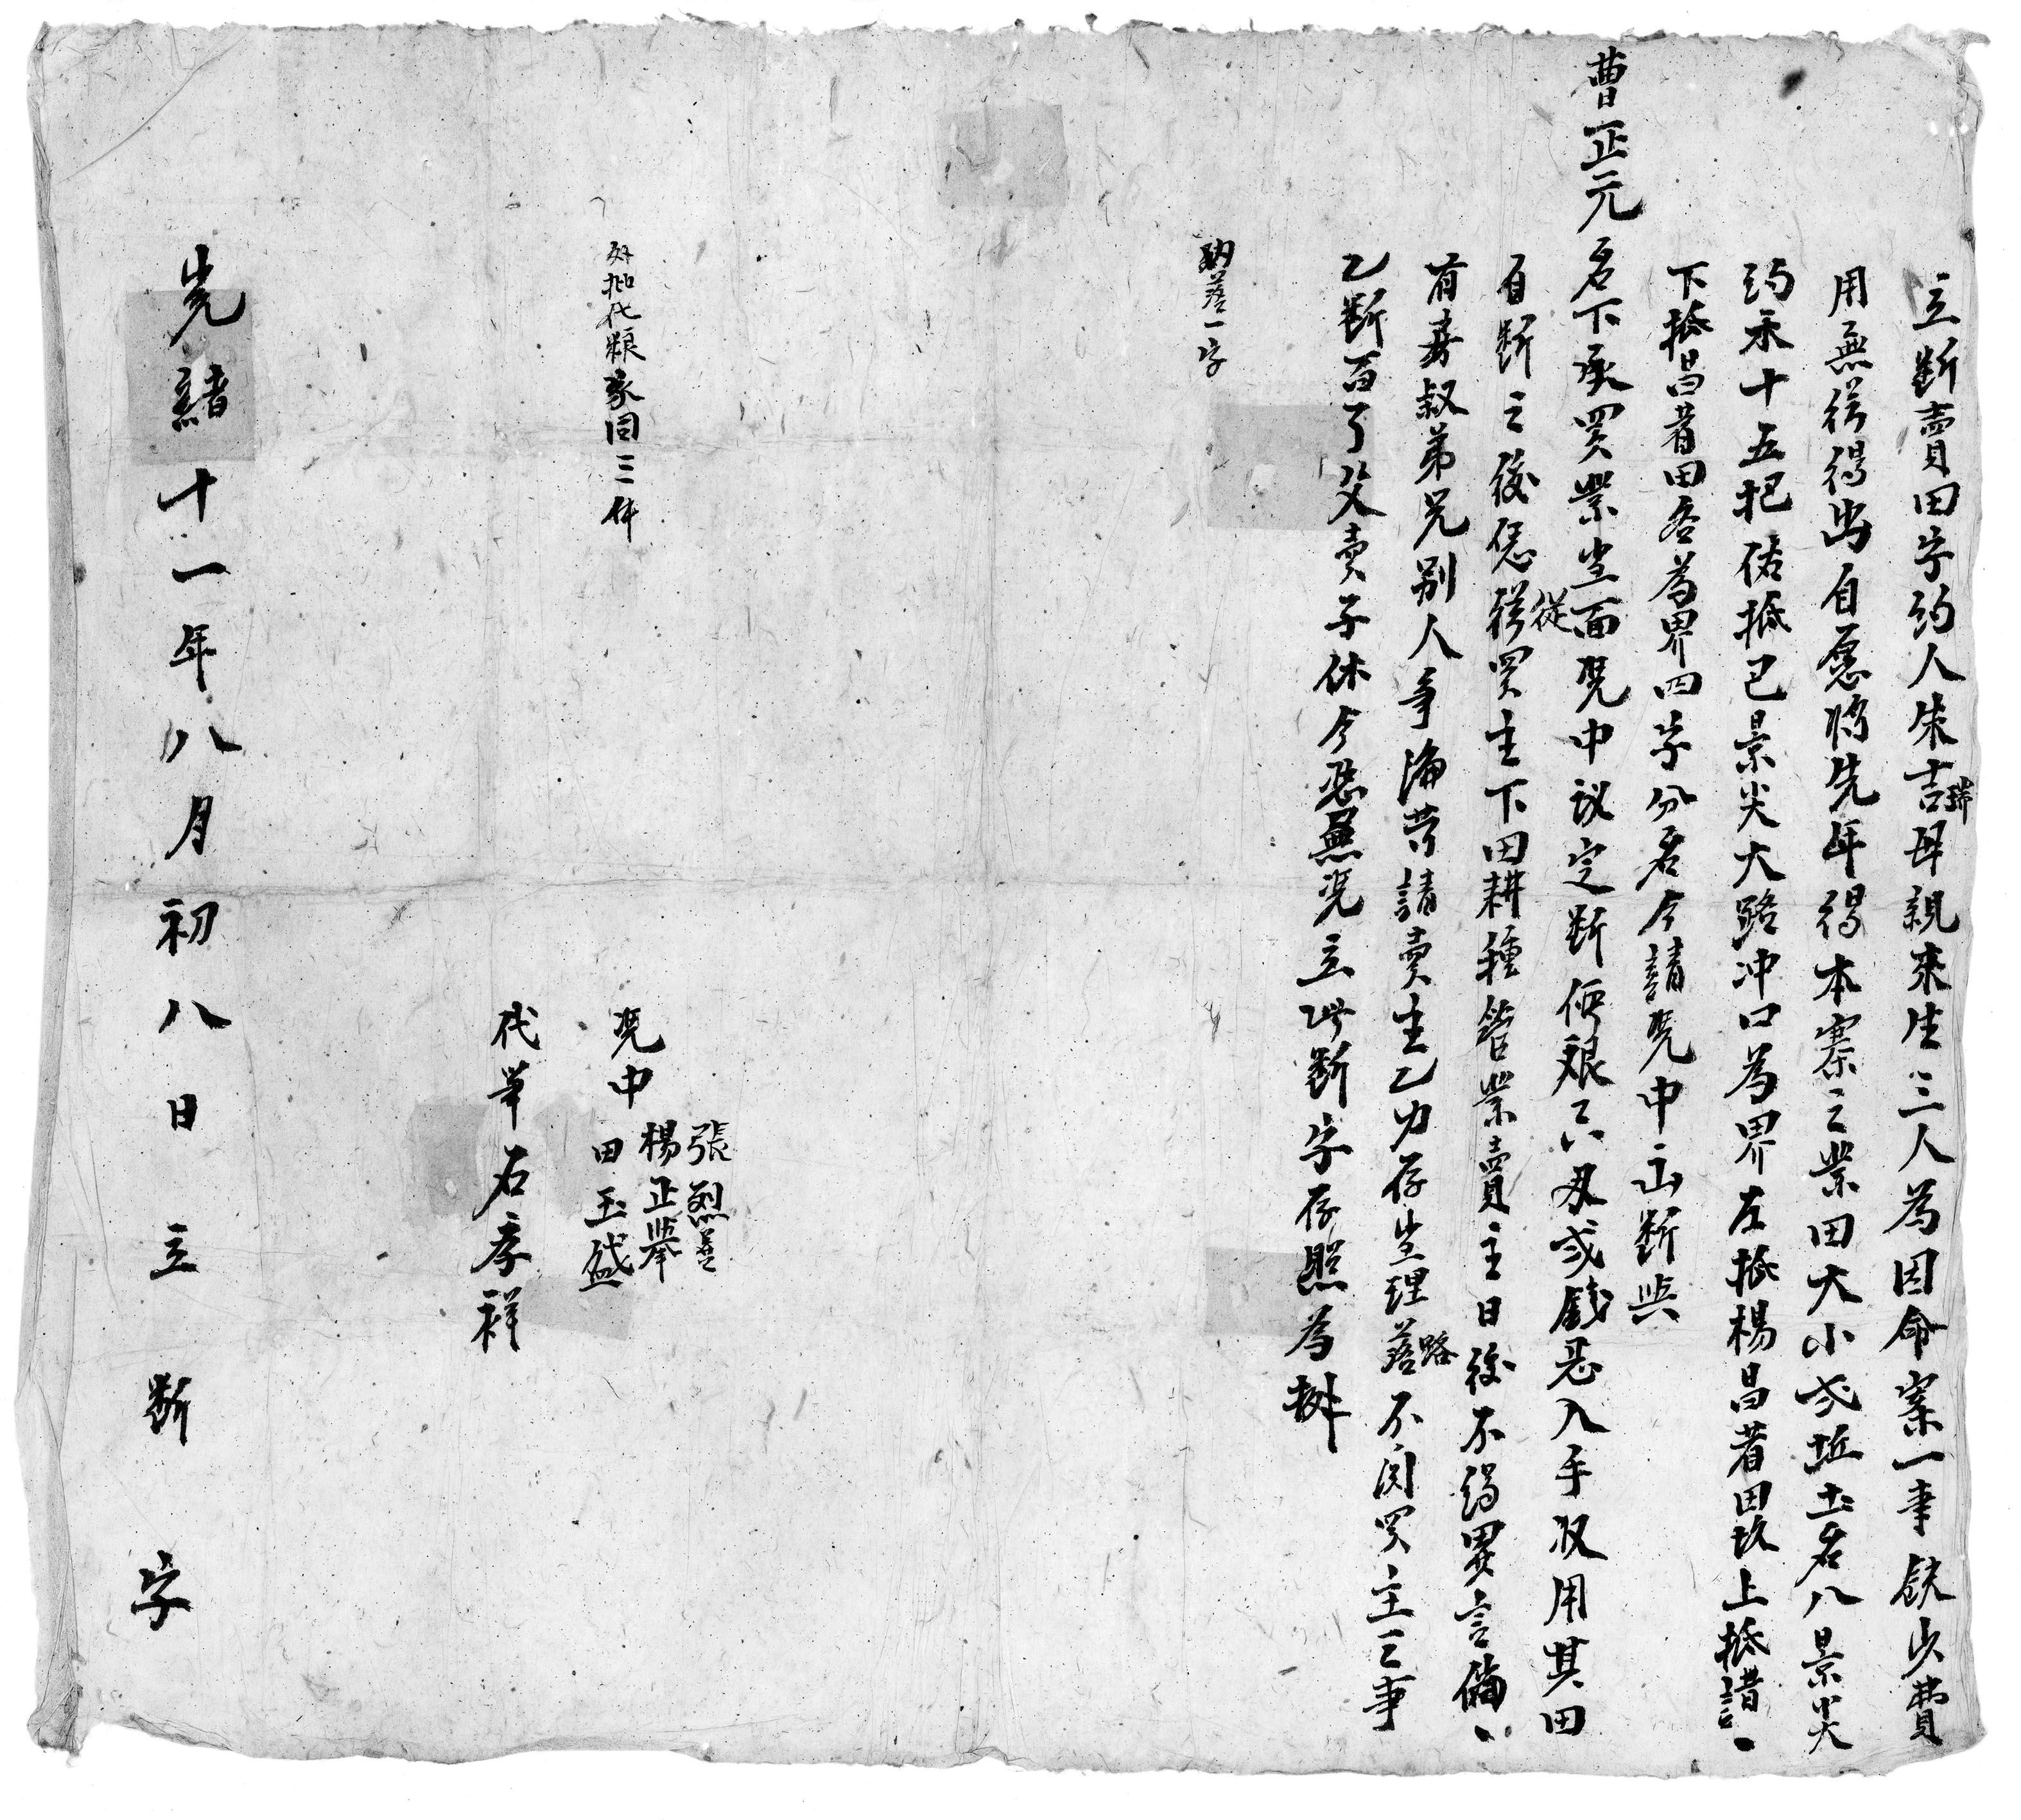 立断賣田字约人朱吉瑞母親來生三人為因命案一事缺少費
用無從得出自愿將先年得本寨之業田大小弍坵土名八景尖
约禾十五把佑抵己景尖大路冲口為界左抵楊昌著田坎上抵
下抵昌著田各為界四字分名今請凭中出断與
曹正元名下承買業坐面凭中议定断價艮六两弍錢足入手收用其田
自断之後恁從從買主下田耕種管業賣主日後不得異言倘
有房叔弟兄别人爭論昔請賣主乙力存坐理落路不関買主之事
乙断百了父賣子休今恐無凭立此断字存照為據
内落一字
外批代粮家同三件
凭中
張烈善
楊正舉
田玉盛
代筆石孝祥
光緒十一年八月初八日立断字